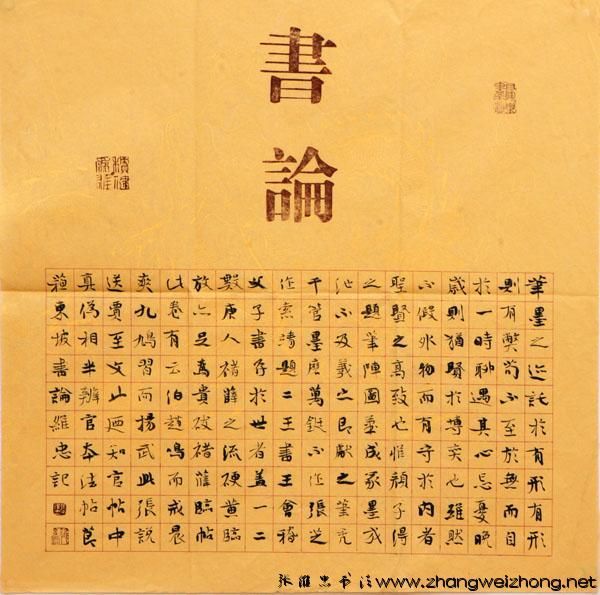 書
論
筆墨之迹託於有形有形
則有弊苟不至於無而自
於一時聊遇其心忘憂晚
歲則猶賢於博奕也雖然
不假外物而有守於內者
聖賢之高致也惟顏子得
之題筆陣圖筆成冢墨成
池不及羲之即獻之筆禿
千管墨磨萬鋌不作張芝
作索靖題二王書王會稽
父子書存於世者蓋一二
數唐人褚薛之流硬黃臨
放亦足為貴跋褚薛臨帖
此卷有云伯趙鳴而戒晨
爽九鳩習而揚武此張說
送賈至文山廼知官帖中
真偽相半辨官本法帖節
蘇東坡書論維忠記
张維忠书法www.zhangweizhong.net